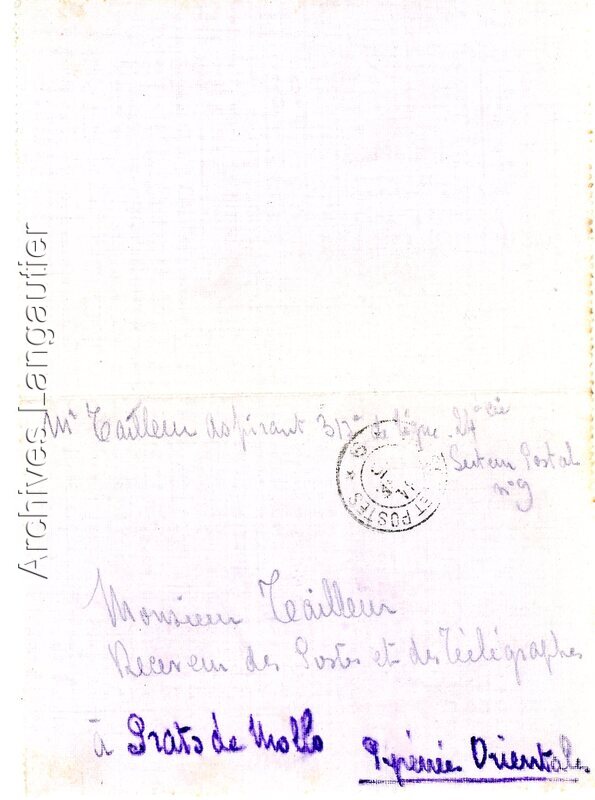 Archives Langautier
Mr Tailleur aspirant 313e de ligne. 27e cie
Secteur Postal
n° 9
ET POSTES * 9
Monsieur Tailleur
Receveur des Postes et des Télégraphes
à Prats de Mollo
Pyrénée Orientale.